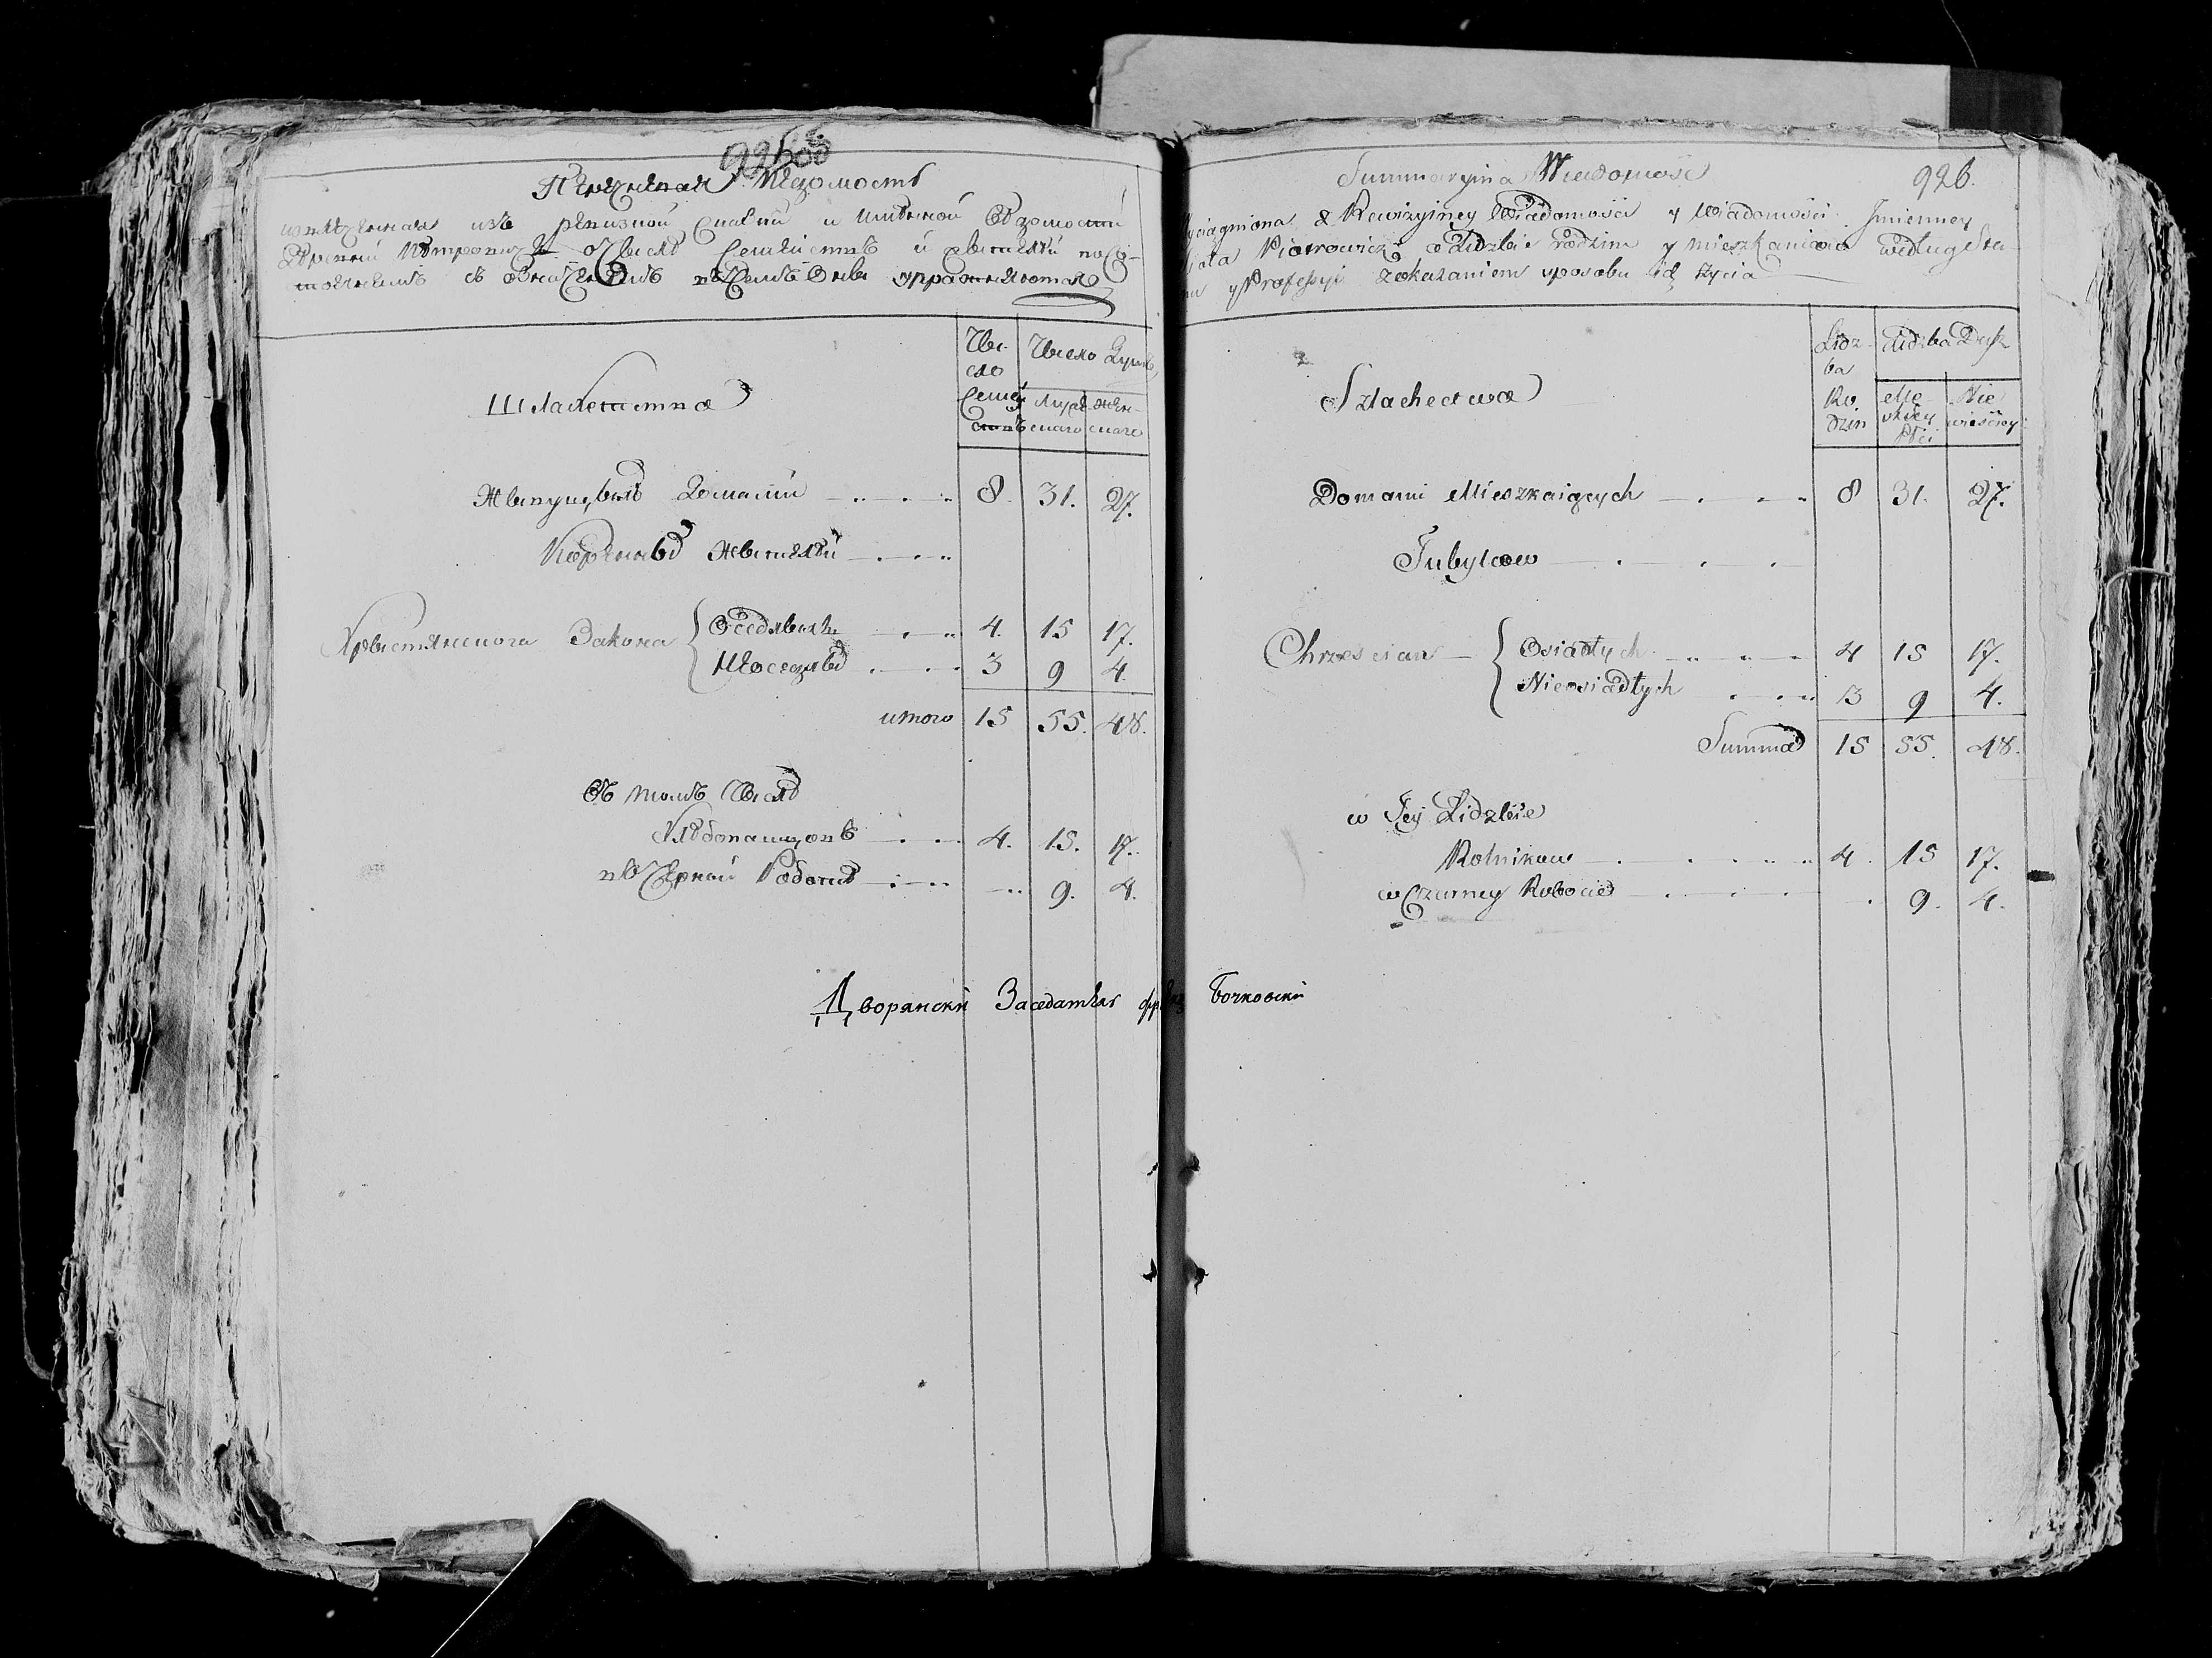 Перечневая Ведомость
извлеченная изъ ревизной сказки и имянной Ведомости
о числе семействъ и жителей по со-
стояниемъ съ означениемъ въ чемъ они упражняются
Шляхетства
Чи-
сло
семей-
ствъ
Число Душъ
мужескаго
женскаго
Живущихъ Домами 8. 31. 27.
Коренныхъ жителей
Християнского Закона
Оседлыхъ 4. 15 17.
Неоседлыхъ 3 9 4.
итого 15 55. 48.
Въ томъ числе
Хлебопашцовъ 4. 15. 17.
въ Черной Работе 9. 4.
Дворянский Заседатель Бочковский
Summaryina Wiadomość
926.
z Rewizyiney Wiadomości y Wiadomości Jmienney
Piotrowicz o Lidzbie rodzin y mieszkańcow według Sta-
nu y Professyi z okazaniem sposobu ich życia
Szlachectwa
Lidz-
ba
Ro
dzin
Lidzba Dusz
Mę
zkiey
Płci
Nie
wieściey
Domami Mieszkaiących 8 31. 27.
Tubylcow
Chrześcian
Osiadłych 4 15 17.
Nieosiadłych 3 9 4.
Summa 15 55. 48.
w Tey Lidzbie
Rolnikow 4. 15 17.
w Czarney Robocie 9. 4.